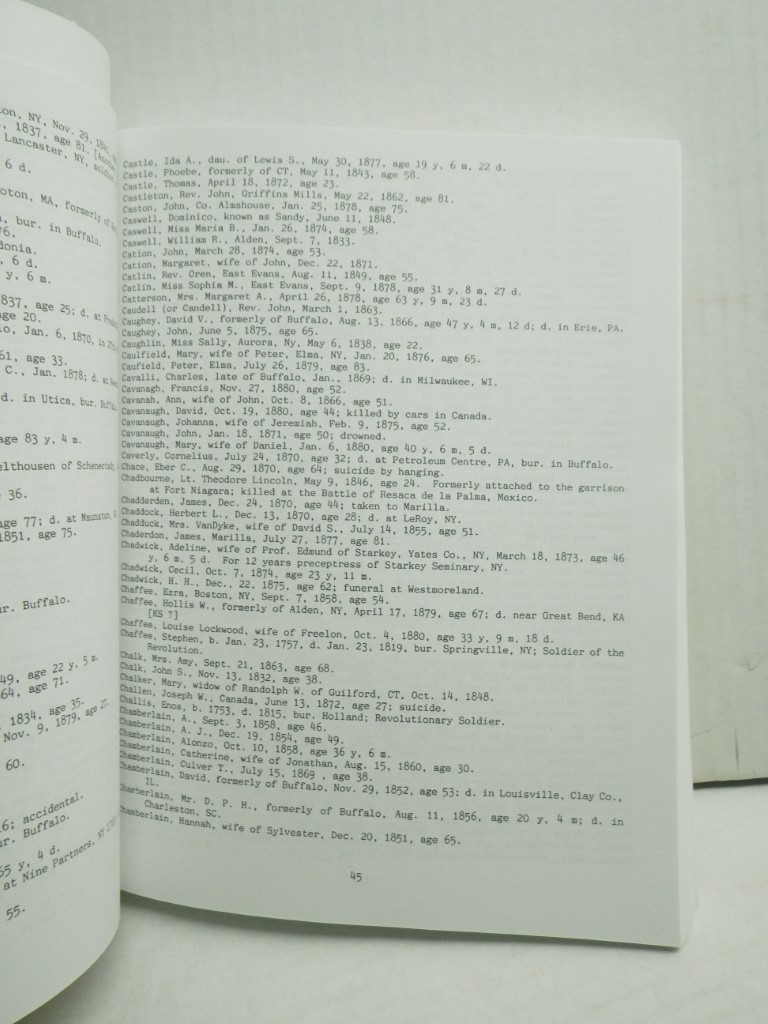 ton, NY, Nov. 29,
1837, age 81.
Lancaster, NY,
6 d.
MA, formerly of
bur. in Buffalo.
76.
donia.
6 d.
y, 6 m.
837, age 25; d. at
age 20.
Jan. 6, 1870, in
61, age 33.
C., Jan. 1878; d. at
d. in Utica, bur.
age 83 y, 4 m.
elthousen of
36.
age 77; d. at
1851, age 75.
ur. Buffalo.
49, age 22 y, 5 m.
64, age 71.
1834, age 35.
Nov. 9, 1879, age
60.
6; accidental.
ur. Buffalo.
65 y, 4 d.
at Nine Partners, NY
55.
Castle, Ida A., dau. of Lewis S., May 30, 1877, age 19 y, 6 m, 22 d.
Castle, Phoebe, formerly of CT, May 11, 1843, age 58.
Castle, Thomas, April 18, 1872, age 23.
Castleton, Rev. John, Griffins Mills, May 22, 1862, age 81.
Caston, John, Co. Almshouse, Jan. 25, 1878, age 75.
Caswell, Dominico, known as Sandy, June 11, 1848.
Caswell, Miss Maria B., Jan. 26, 1874, age 58.
Caswell, William R., Alden, Sept. 7, 1833.
Cation, John, March 28, 1874, age 53.
Cation, Margaret, wife of John, Dec. 22, 1871.
Catlin, Rev. Oren, East Evans, Aug. 11, 1849, age 55.
Catlin, Miss Sophia M., East Evans, Sept. 9, 1878, age 31 y, 8 m, 27 d.
Catterson, Mrs. Margaret A., April 26, 1878, age 63 y, 9 m, 23 d.
Caudell (or Candell), Rev. John, March 1, 1863.
Caughey, David V., formerly of Buffalo, Aug. 13, 1866, age 47 y, 4 m, 12 d; d. in Erie, PA.
Caughey, John, June 5, 1875, age 65.
Caughlin, Miss Sally, Aurora, Ny, May 6, 1838, age 22.
Caulfield, Mary, wife of Peter, Elma, NY, Jan. 20, 1876, age 65.
Caufield, Peter, Elma, July 26, 1879, age 83.
Cavalli, Charles, late of Buffalo, Jan., 1869; d. in Milwaukee, WI.
Cavanagh, Francis, Nov. 27, 1880, age 52.
Cavanah, Ann, wife of John, Oct. 8, 1866, age 51.
Cavanaugh, David, Oct. 19, 1880, age 44; killed by cars in Canada.
Cavanaugh, Johanna, wife of Jeremiah, Feb. 9, 1875, age 52.
Cavanaugh, John, Jan. 18, 1871, age 50; drowned.
Cavanaugh, Mary, wife of Daniel, Jan. 6, 1880, age 40 y, 6 m, 5 d.
Caverly, Cornelius, July 24, 1870, age 32; d. at Petroleum Centre, PA, bur. in Buffalo.
Chace, Eber C., Aug. 29, 1870, age 64; suicide by hanging.
Chadbourne, Lt. Theodore Lincoln, May 9, 1846, age 24. Formerly attached to the garrison
at Fort Niagara; killed at the Battle of Resaca de la Palma, Mexico.
Chadderden, James, Dec. 24, 1870, age 44; taken to Marilla.
Chaddock, Herbert L., Dec. 13, 1870, age 28; d. at LeRoy, NY.
Chadduck, Mrs. VanDyke, wife of David S., July 14, 1855, age 51.
Chaderdon, James, Marilla, July 27, 1877, age 81.
Chadwick, Adeline, wife of Prof. Edmund of Starkey, Yates Co., NY, March 18, 1873, age 46
y, 6 m, 5 d. For 12 years preceptress of Starkey Seminary, NY.
Chadwick, Cecil, Oct. 7, 1874, age 23 y, 11 m.
Chadwick, H. H., Dec., 22, 1875, age 62; funeral at Westmoreland.
Chaffee, Ezra, Boston, NY, Sept. 7, 1858, age 54.
Chaffee, Hollis W., formerly of Alden, NY, April 17, 1879, age 67; d. near Great Bend, KA
[KS ?]
Chaffee, Louise Lockwood, wife of Freelon, Oct. 4, 1880, age 33 y, 9 m, 18 d.
Chaffee, Stephen, b. Jan. 23, 1757, d. Jan. 23, 1819, bur. Springville, NY; Soldier of the
Revolution.
Chalk, Mrs. Amy, Sept. 21, 1863, age 68.
Chalk, John S., Nov. 13, 1832, age 38.
Chalker, Mary, widow of Randolph W. of Guilford, CT, Oct. 14, 1848.
Challen, Joseph W., Canada, June 13, 1872, age 27; suicide.
Challis, Enos, b. 1753, d. 1815, bur. Holland; Revolutionary Soldier.
Chamberlain, A., Sept. 3, 1858, age 46.
Chamberlain, A. J., Dec. 19, 1854, age 49.
Chamberlain, Alonzo, Oct. 10, 1858, age 36 y, 6 m.
Chamberlain, Catherine, wife of Jonathan, Aug. 15, 1860, age 30.
Chamberlain, Culver T., July 15, 1869 , age 38.
Chamberlain, David, formerly of Buffalo, Nov. 29, 1852, age 53; d. in Louisville, Clay Co.,
IL.
Chamberlain, Mr. D. P. H., formerly of Buffalo, Aug. 11, 1856, age 20 y, 4 m; d. in
Charleston, SC.
Chamberlain, Hannah, wife of Sylvester, Dec. 20, 1851, age 65.
45